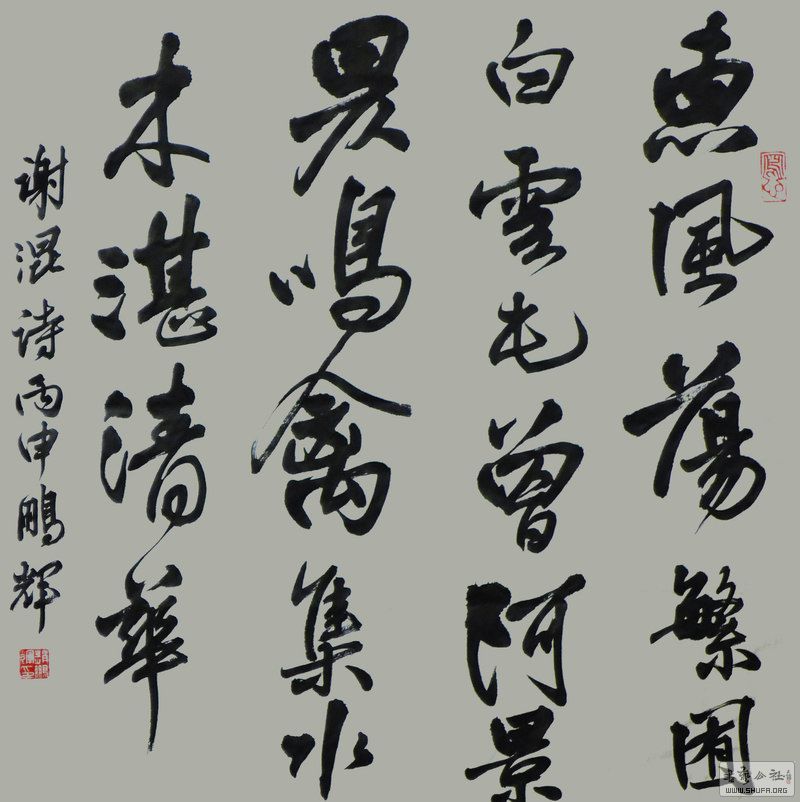 惠風蕩繁囿
白雲屯曾阿景
昃鳴禽集水
木湛清華
謝混诗丙申鵬輝
書藝公社
WWW.SHUFA.ORG